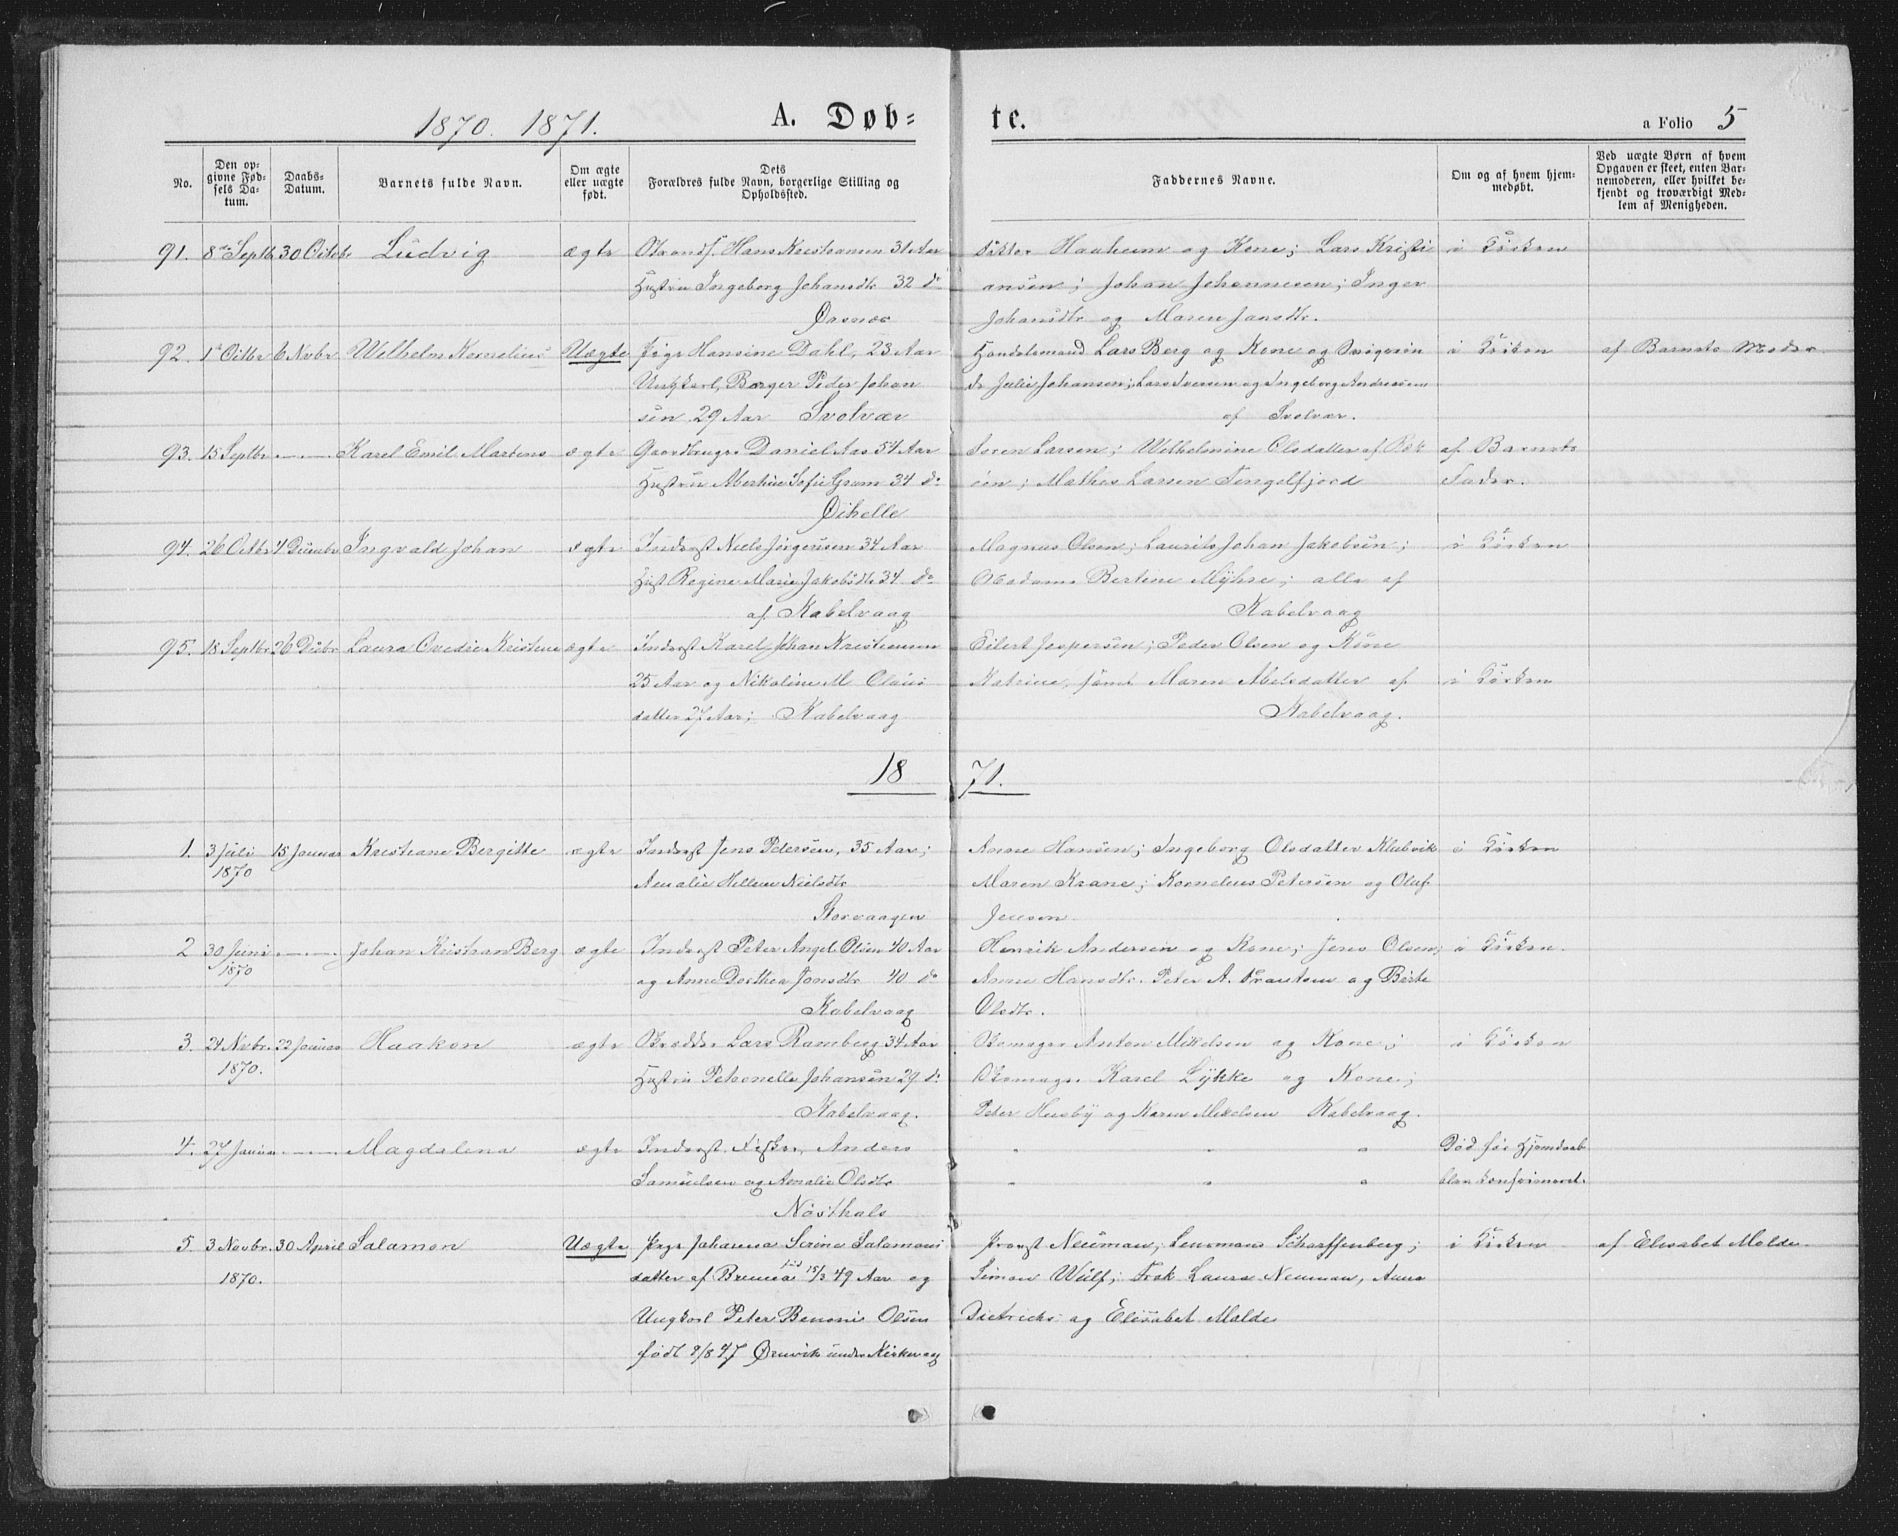 1870. 1871. A. Døb= te. a Folio 5
No. Den opgivne Fødsels Datum. Daabs-Datum. Barnets fulde Navn. Om ægte eller uægte født. Dets Forældres fulde Navn, borgerlige Stilling og Opholdssted. Faddernes Navne. Om og af hvem hjemmedøbt. Ved uægte Børn af hvem Opgaven er skeet, enten Barnemoderen, eller hvilket bekjendt og troværdigt Medlem af Menigheden.
91. 8de Septbr 30 Octobr Ludvig ægte Hans Kristiansen 31 Aar Haaheim og Kone; Lars Kristi i Kirken
Hustru Ingeborg Johansdtr 32 do ansen; Johan Johannesen; Inger
Johansdtr og Maren Jansdtr.
92. 1st Octbr 6 Novbr Wilhelm Kornelius Uægte Pige Hansine Dahl, 23 Aar Handelsmand Lars Berg og Kone og i Kirken af Barnets Moder
Ungkarl, Borger Peder Johan Julie Johansen; Lars Iversen og Ingeborg Andreasen
sen 29 Aar Svolvær af Svolvær.
93. 15 Septbr —·— Karel Emil Martens ægte Gaardbruger Daniel Aas 54 Aar Søren Larsen; Wilhelmine Olsdatter af af Barnets
Hustru Sofie Gram 34 do Mathes Larsen Tengelfjord Fader.
Øihelle
94. 26 Octbr 4 Decembr Ingvald Johan ægte Inderst Niels Jørgensen 34 Aar Magnus Olsen; Laurits Johan Jakobsen; i Kirken
Hust Regine Marie Jakobsdtr 34 do Madame Bertine Myhre; alle af
af Kabelvaag Kabelvaag
95. 18 Septbr 26 Decbr Laura Ovedie Kristine ægte Inderst Karel Johan Kristiansen Eilert Jespersen; Peder Olsen og Kone
25 Aar og Nikoline M. Olaus Katrine, samt Maren Abelsdatter af i Kirken
datter 27 Aar; Kabelvaag Kabelvaag.
18 71.
1. 3 Juli 15 Januar Kristiane Bergitte ægte Inderst Jens Pedersen, 35 Aar; Anne Hansen; Ingeborg Olsdatter Klubvik i Kirken
1870 Amalie Hellene Nielsdtr Maren Krane; Kornelius Petersen og Oluf
Storvaagen Jensen
2 30 Juni —·— Johan Kristian Berg ægte Inderst Peter Angel Olsen 40 Aar Henrik Andersen og Kone; Jens Olsen; i Kirken.
1870 og Anne Dorthea Jonsdtr 40 do Anne Hansdtr. Peter A. Frantsen og Berte
Kabelvaag Olsdtr.
3. 24 Novbr. 22 Januar Haakon ægte Lars Ramberg 34 Aar Skomager Anton Mikelsen og Kone; i Kirken
1870. Hustru Petronelle Johansen 29 do Skomager Karel Lykke og Kone;
Kabelvaag. Peter Husby og Karen Mikelsen Kabelvaag.
4. 27 Januar —·— Magdalena ægte Inderst, Fisker, Anders " " " Død før Hjemdaab
Samuelsen og Amalie Olsdtr " " " blev konfirmeret.
Nösthals
5. 3 Novbr. 30 April Salamon Uægte Pige Johanna Serine Salamons Provst Neuman, Lensman Scharffenberg; i Kirken af Elisabet Molde
1870. datter af Bremnes fød 15/3 49 Aar og Simon Wulf; Frøk Laura Neuman, Anna
Ungkarl Peter Benoni Olsen Dietrichs og Elisabet Molde
født 9/8 47 Ørsvik under Kirkevaag